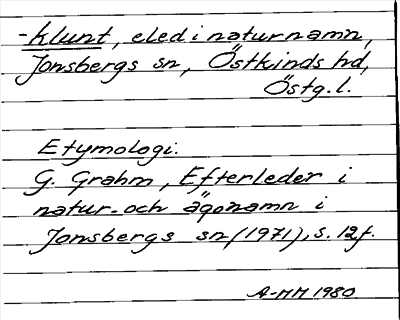 -klunt, eled i naturnamn,
Jonsbergs sn, Östkinds hd,
Östg.l.
Etymologi.
G. Grahm, Efterleder i
natur- och ägonamn i
Jonsbergs sn (1971), s. 12f.
A-MH 1980